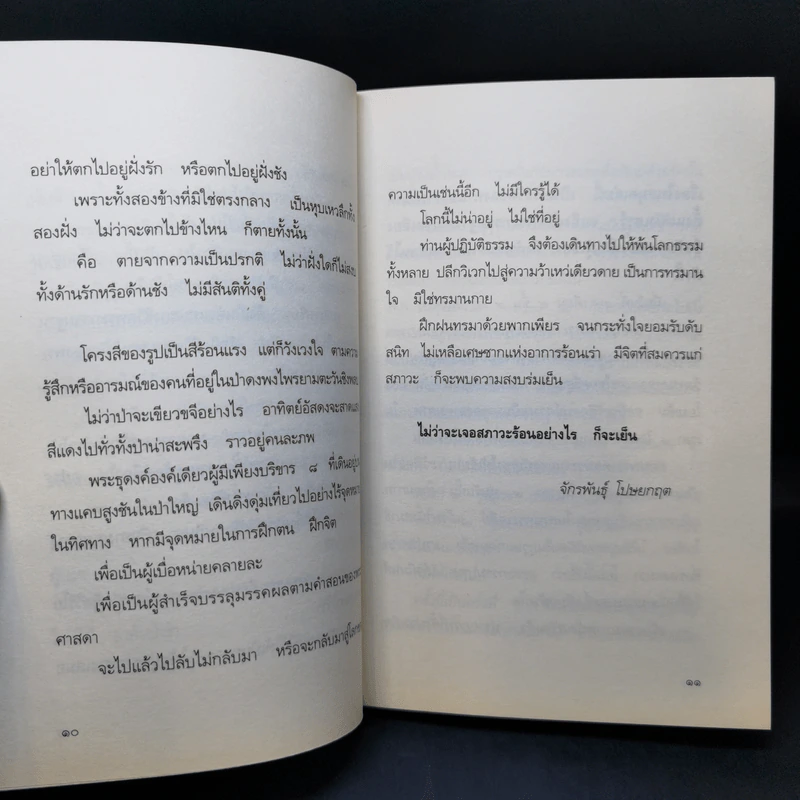 อย่าให้ตกไปอยู่ฝั่งรัก หรือตกไปอยู่ฝั่งชัง
เพราะทั้งสองข้างที่มิใช่ตรงกลาง เป็นหุบเหวลึกทั้ง
สองฝั่ง ไม่ว่าจะตกไปข้างไหน ก็ตายทั้งนั้น
คือ ตายจากความเป็นปรกติ ไม่ว่าฝั่งใดก็ไม่สงบ
ทั้งด้านรักหรือด้านชัง ไม่มีสันติทั้งคู่
โครงสีของรูปเป็นสีร้อนแรง แต่ก็วังเวงใจ ตามความ
รู้สึกหรืออารมณ์ของคนที่อยู่ในป่าดงพงไพรยามตะวันชิงพลบ
ไม่ว่าป่าจะเขียวขจีอย่างไร อาทิตย์อัสดงจะสาดแสง
สีแดงไปทั่วทั้งป่าน่าสะพรึง ราวอยู่คนละภพ
พระธุดงค์องค์เดียวผู้มีเพียงบริขาร ๘ ที่เดินอยู่บน
ทางแคบสูงชันในป่าใหญ่ เดินดิ่งดุ่มเที่ยวไปอย่างไร้จุดหมาย
ในทิศทาง หากมีจุดหมายในการฝึกตน ฝึกจิต
เพื่อเป็นผู้เบื่อหน่ายคลายละ
เพื่อเป็นผู้สำเร็จบรรลุมรรคผลตามคำสอนของ
ศาสดา
จะไปแล้วไปลับไม่กลับมา หรือจะกลับมาสู่
๑๐
ความเป็นเช่นนี้อีก ไม่มีใครรู้ได้
โลกนี้ไม่น่าอยู่ ไม่ใช่ที่อยู่
ท่านผู้ปฏิบัติธรรม จึงต้องเดินทางไปให้พ้นโลกธรรม
ทั้งหลาย ปลีกวิเวกไปสู่ความว้าเหว่เดียวดาย เป็นการทรมาน
ใจ มิใช่ทรมานกาย
ฝึกฝนทรมาด้วยพากเพียร จนกระทั่งใจยอมรับดับ
สนิท ไม่เหลือเศษซากแห่งอาการร้อนเร่า มีจิตที่สมควรแก่
สภาวะ ก็จะพบความสงบร่มเย็น
ไม่ว่าจะเจอสภาวะร้อนอย่างไร ก็จะเย็น
จักรพันธุ์ โปษยกฤต
๑๑